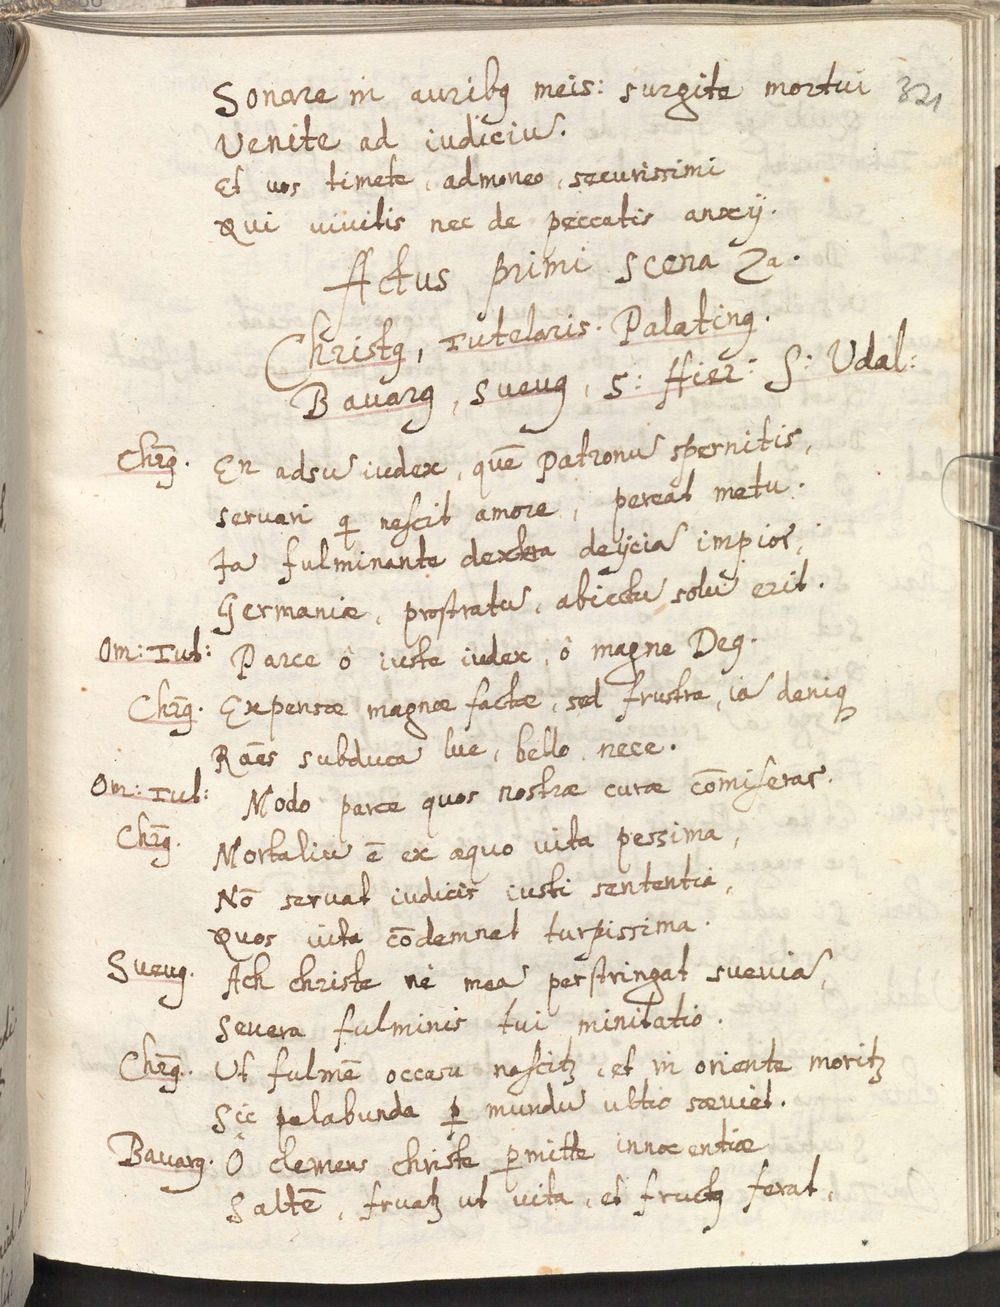 Sonare in auribꝫ meis: surgite mortui 321
Venite ad iudiciū.
Et vos timete, admoneo, securissimi
Qui vivitis nec de peccatis anxij.
Actus primi scena 2a.
Christꝫ, Tutelaris. Palatinꝫ.
Bavarꝫ, Suevꝫ, S: Hier: S: Udal:
Chrꝫ. En adsū iudex, quē Patronū spernitis,
servari q̨ nescit amore, pereat metu.
Ia fulminante dextra deijciā impios,
Germaniæ, prostratū, abiectū solū erit.
Om: Tut: Parce ô iuste iudex, ô magne Deꝫ.
Chrꝫ. Expensæ magnæ factæ, sed frustra, iā deniqꝫ
Rāes subducā lue, bello, nece.
Om: Tut: Modo parce quos nostræ curæ cōmiseras.
Chrꝫ. Mortaliū ē ex æquo vita pessima,
Nō servat iudicis iusti sententia,
Quos vita cōdemnat turpissima.
Suevꝫ. Ach christe nē meā perstringat sueviā,
Severa fulminis tui minitatio.
Chrꝫ. Ut fulmē occasu nascitꝫ, et in oriente moritꝫ
Sic palabunda ꝑ mundū ultio sæviet.
Bavarꝫ. Ô clemens christe ꝑmitte innocentiæ
Saltē, fruatꝫ ut vita, et fructꝫ ferat,